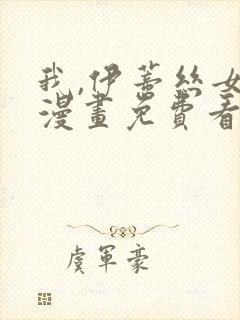 我,伊蒂丝女
漫畫免費看
虞軍豪